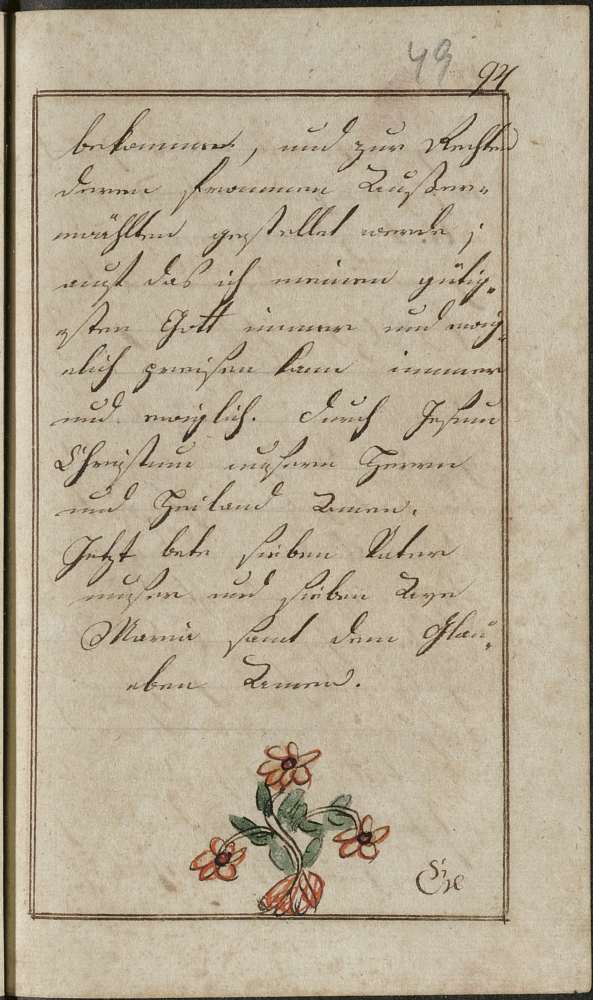 49
97
bekommen, und zur Rechten
deren frommen Außer-
wählten gestellet werde;
auf das ich meinen gütig-
sten Gott immer und ewig-
elich preisen kann immer
und ewiglich. Durch Jesum
Christum unsern Herrn
und Heiland Amen.
Jetzt bete sieben Vater
unser und sieben Ave
Maria samt dem Glau-
eben Amen.